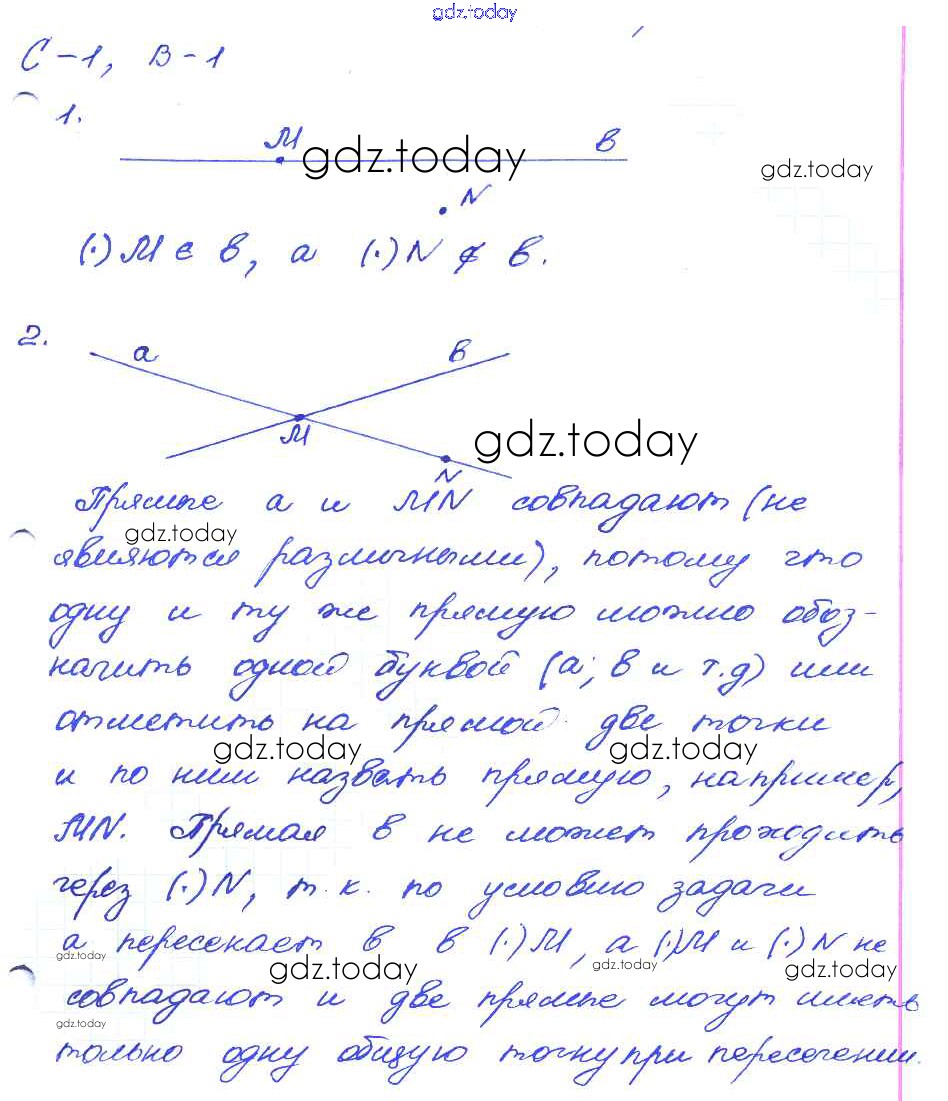 gdz.today
С-1, В-1
1.
M gdz.today в
gdz.today
N
(·) M ∈ в, а (·) N ∉ в.
2.
а в
M gdz.today
N
Прямые а и MN совпадают (не
gdz.today
являются различными), потому что
одну и ту же прямую можно обоз-
начить одной буквой (а; в и т.д) или
отметить на прямой две точки
gdz.today gdz.today
и по ним назвать прямую, например,
MN. Прямая в не может проходить
через (·) N, т.к. по условию задачи
а пересекает в в (·) M, а (·) M и (·) N не
gdz.today gdz.today gdz.today gdz.today
совпадают и две прямые могут иметь
gdz.today
только одну общую точку при пересечении.